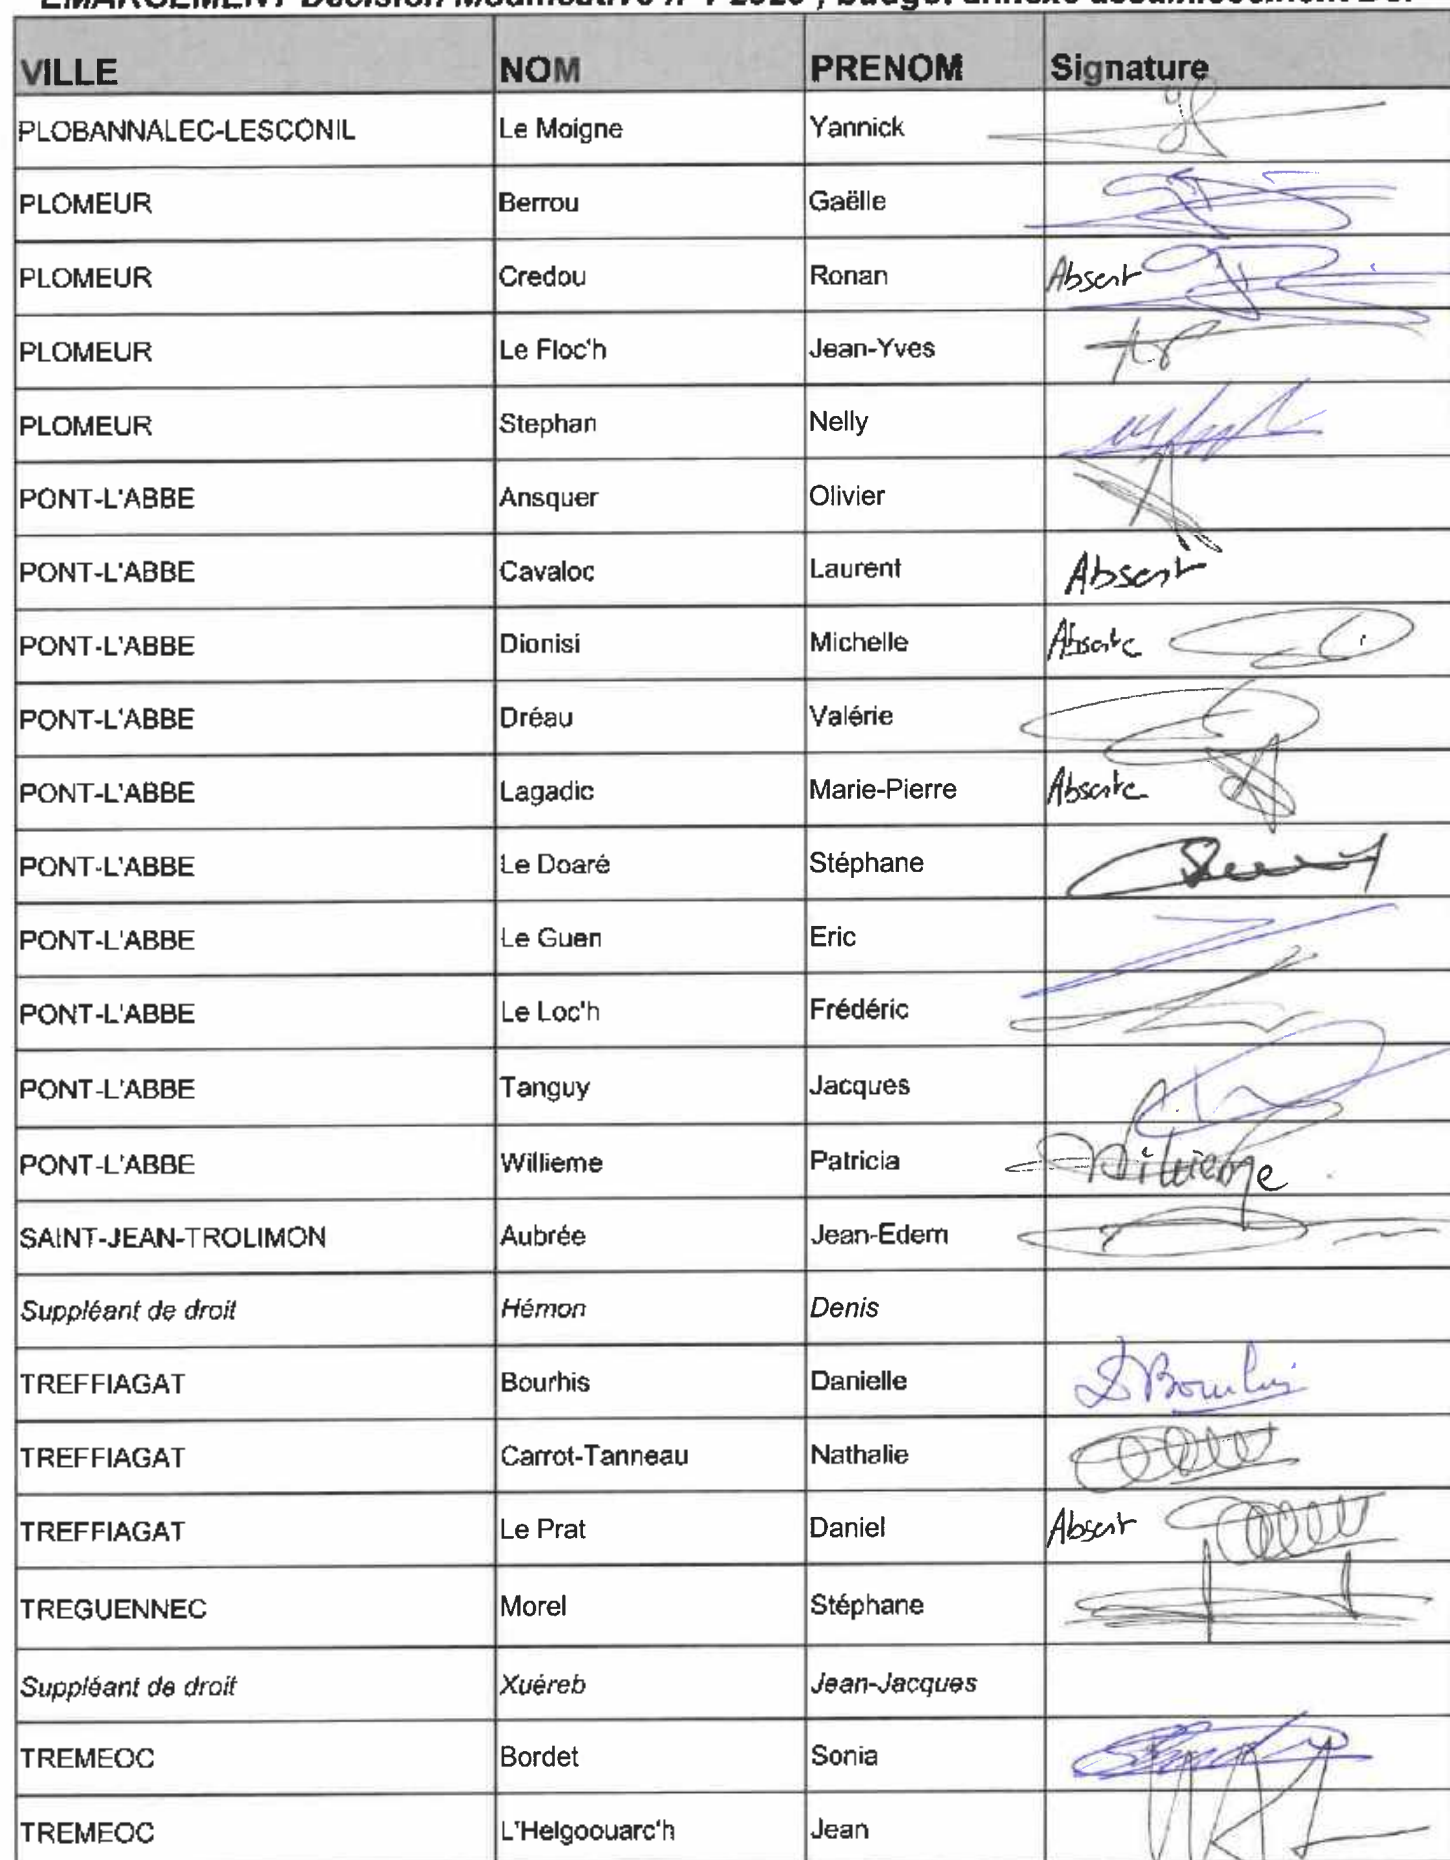 VILLE NOM PRENOM Signature
PLOBANNALEC-LESCONIL Le Moigne Yannick
PLOMEUR Berrou Gaëlle
PLOMEUR Credou Ronan Absent
PLOMEUR Le Floc'h Jean-Yves
PLOMEUR Stephan Nelly
PONT-L'ABBE Ansquer Olivier
PONT-L'ABBE Cavaloc Laurent Absent
PONT-L'ABBE Dionisi Michelle Absente
PONT-L'ABBE Dréau Valérie
PONT-L'ABBE Lagadic Marie-Pierre Absente
PONT-L'ABBE Le Doaré Stéphane
PONT-L'ABBE Le Guen Eric
PONT-L'ABBE Le Loc'h Frédéric
PONT-L'ABBE Tanguy Jacques
PONT-L'ABBE Willieme Patricia
SAINT-JEAN-TROLIMON Aubrée Jean-Edern
Suppléant de droit Hémon Denis
TREFFIAGAT Bourhis Danielle
TREFFIAGAT Carrot-Tanneau Nathalie
TREFFIAGAT Le Prat Daniel Absent
TREGUENNEC Morel Stéphane
Suppléant de droit Xuéreb Jean-Jacques
TREMEOC Bordet Sonia
TREMEOC L'Helgoouarc'h Jean